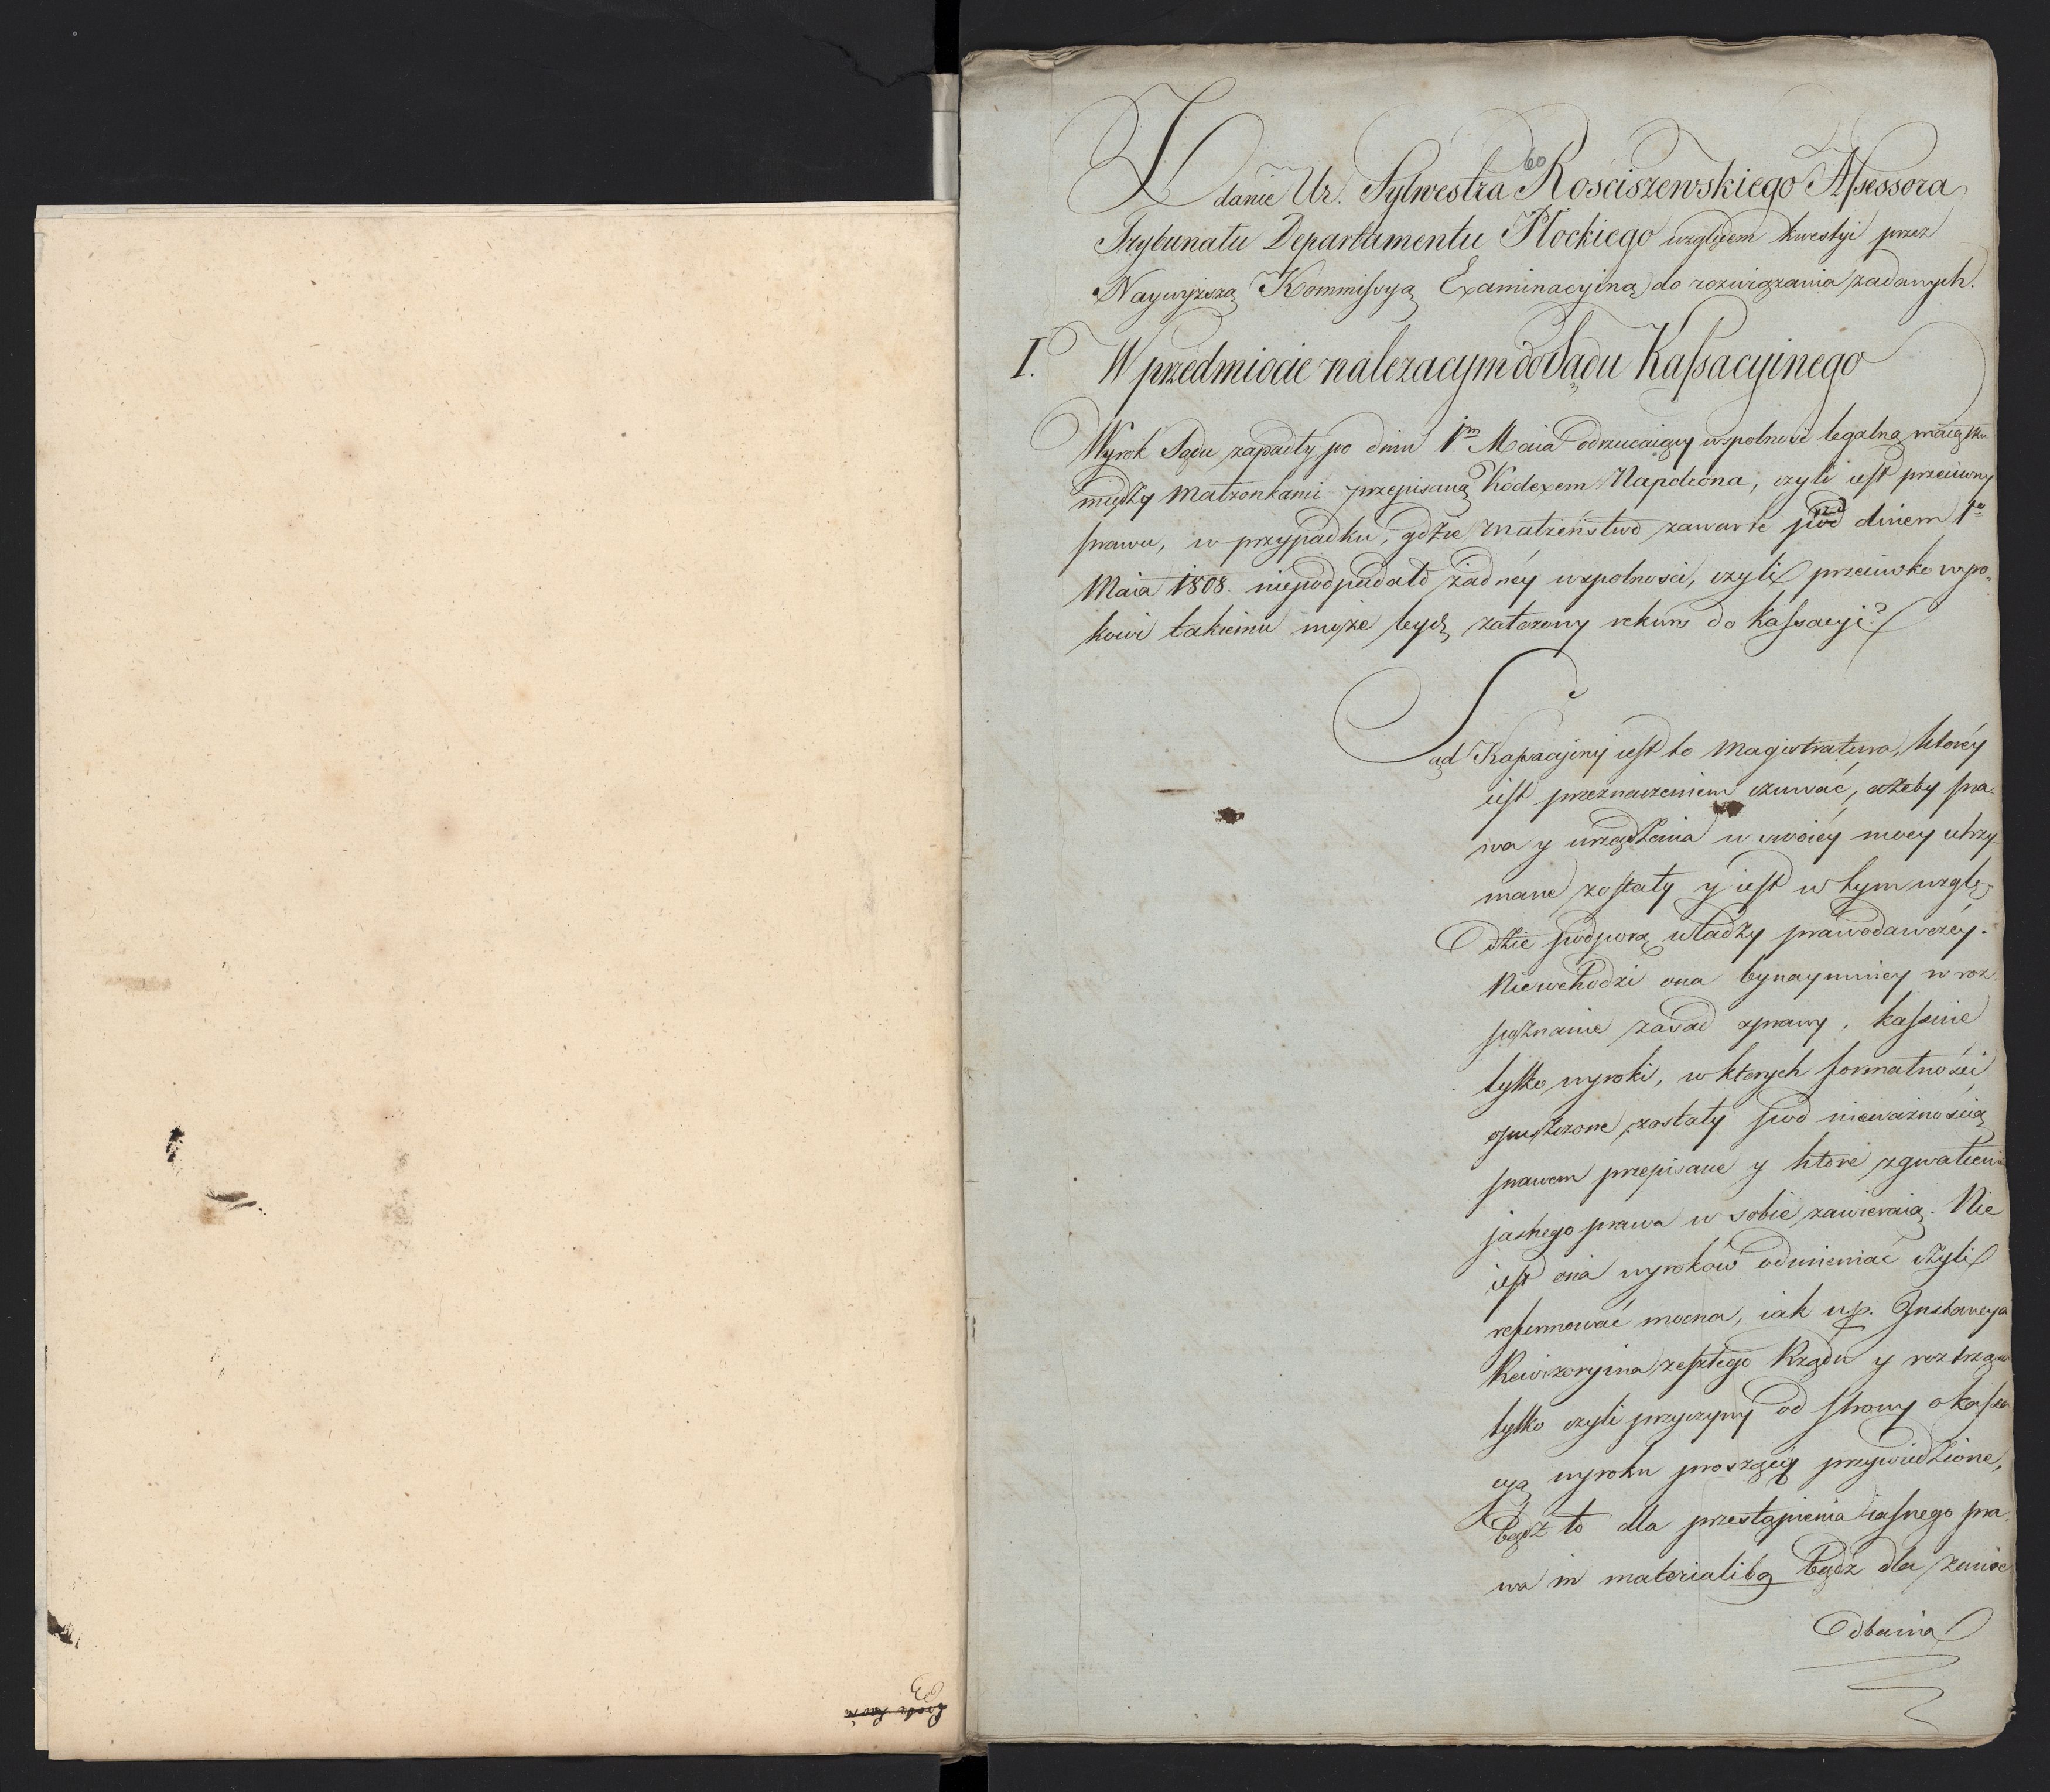 60
Zdanie Ur. Sylwestra Rościszewskiego Assessora
Trybunału Departamentu Płockiego względem kwestyi przez
Naywyższą Kommissyą Examinacyiną do rozwiązania zadanych.
I. W przedmiocie należącym do Sądu Kassacyinego
Wyrok Sądu zapadły po dniu 1m Maia odrzucaiący wspolność legalną maiątku
między Małżonkami przepisaną Kodexem Napoleona, czyli iest przeciwny
prawu, w przypadku, gdzie małżeństwo zawarte dniem 1o
Maia 1808. niepodpadało żadnéy wspolności, czyli przeciwko wyro=
kowi takiemu może bydź założony rekurs do Kassacyi?
Sąd Kassacyiny iest to Magistratura, któréy
iest przeznaczeniem czuwać, ażeby pra=
wa y urządzenia w swoiéy mocy utrzy=
mane zostały y iest w tym wzglę=
dzie podporą władzy prawodawczéy.
Niewchodzi ona bynaymniey w roz=
poznanie zasad sprawy, kassuie
tylko wyroki, w których formalności
opuszczone zostały pod nieważnością
prawem przepisane y które zgwałcenie
jasnego prawa w sobie zawieraią. Nie
iest ona wyroków odmieniać czyli
reformować mocna, iak np. Instancya
Rewizoryina zeszłego Rządu y roztrząsa
tylko czyli przyczyny od strony o kassa=
cyą wyroku proszącéy przywiedzione,
bądź to dla przestąpienia iasnego pra=
wa in materialibq bądź dla zanie=
dbania